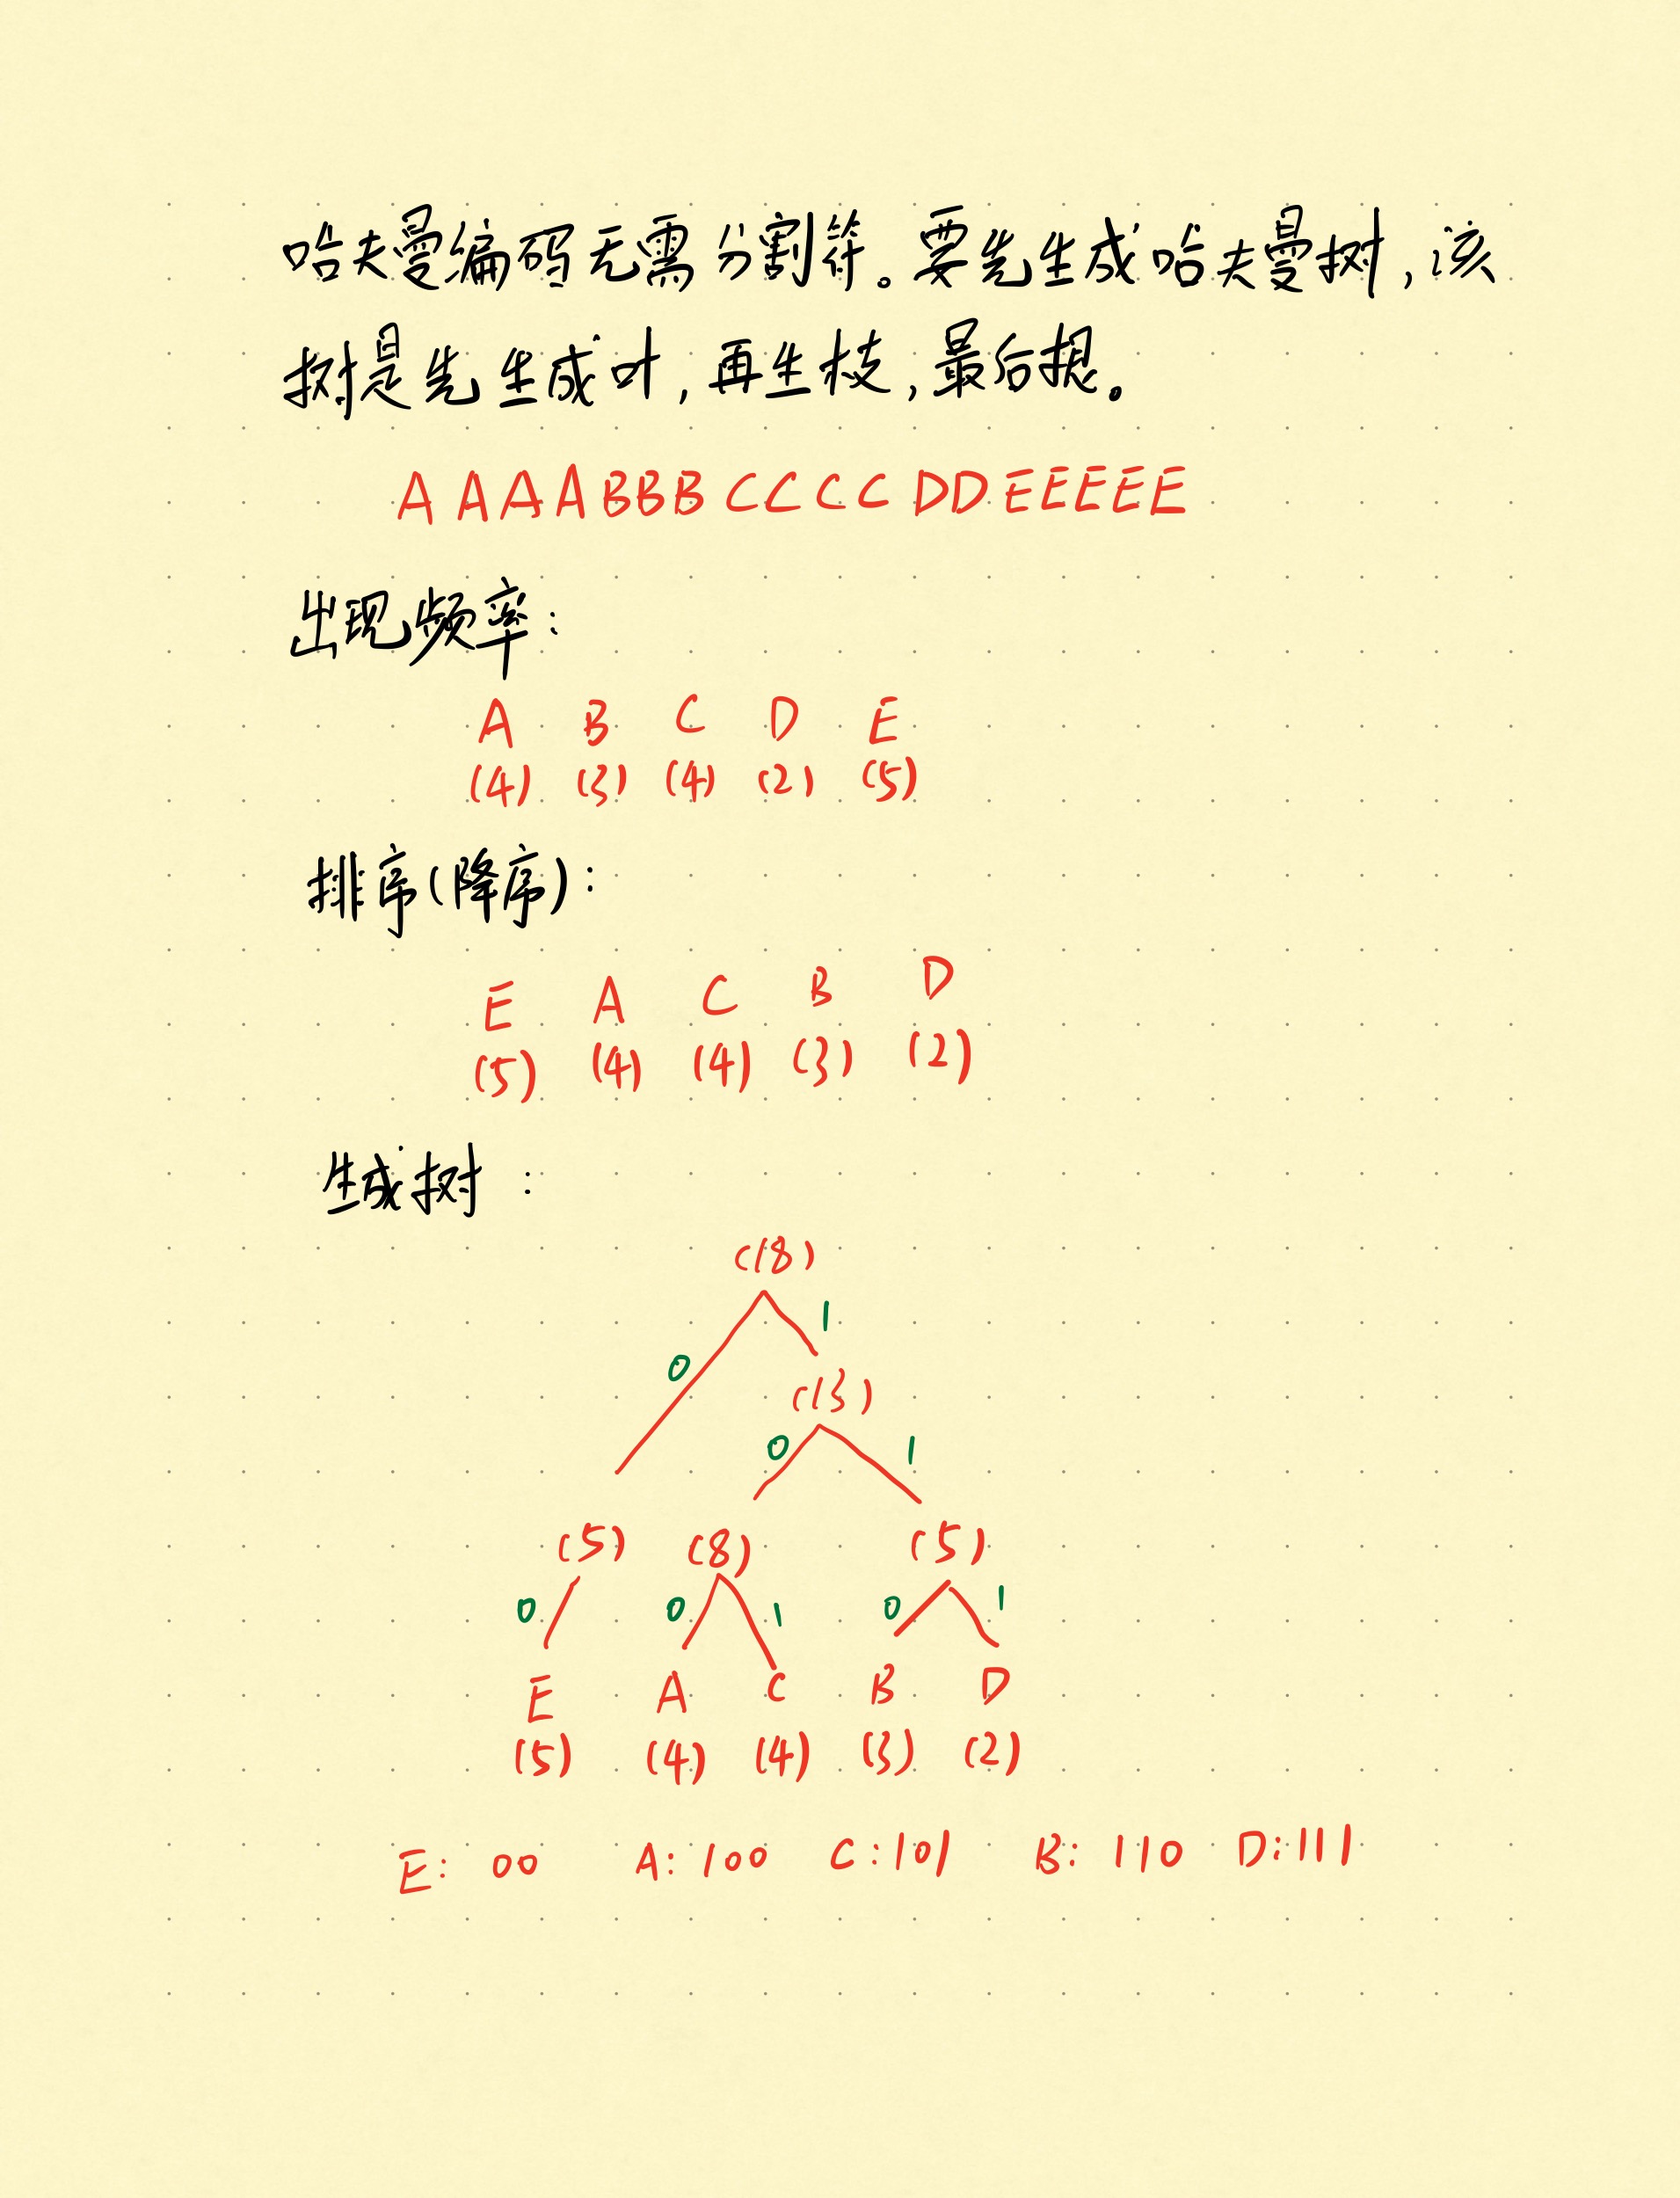 哈夫曼编码无需分割符。要先生成哈夫曼树,该
树是先生成叶,再生枝,最后根。
AAAABBBCCCCDDEEEEE
出现频率:
A B C D E
(4) (3) (4) (2) (5)
排序(降序):
E A C B D
(5) (4) (4) (3) (2)
生成树:
(18)
0 1
(13)
0 1
(5) (8) (5)
0 0 1 0 1
E A C B D
(5) (4) (4) (3) (2)
E: 00 A: 100 C:101 B: 110 D:111